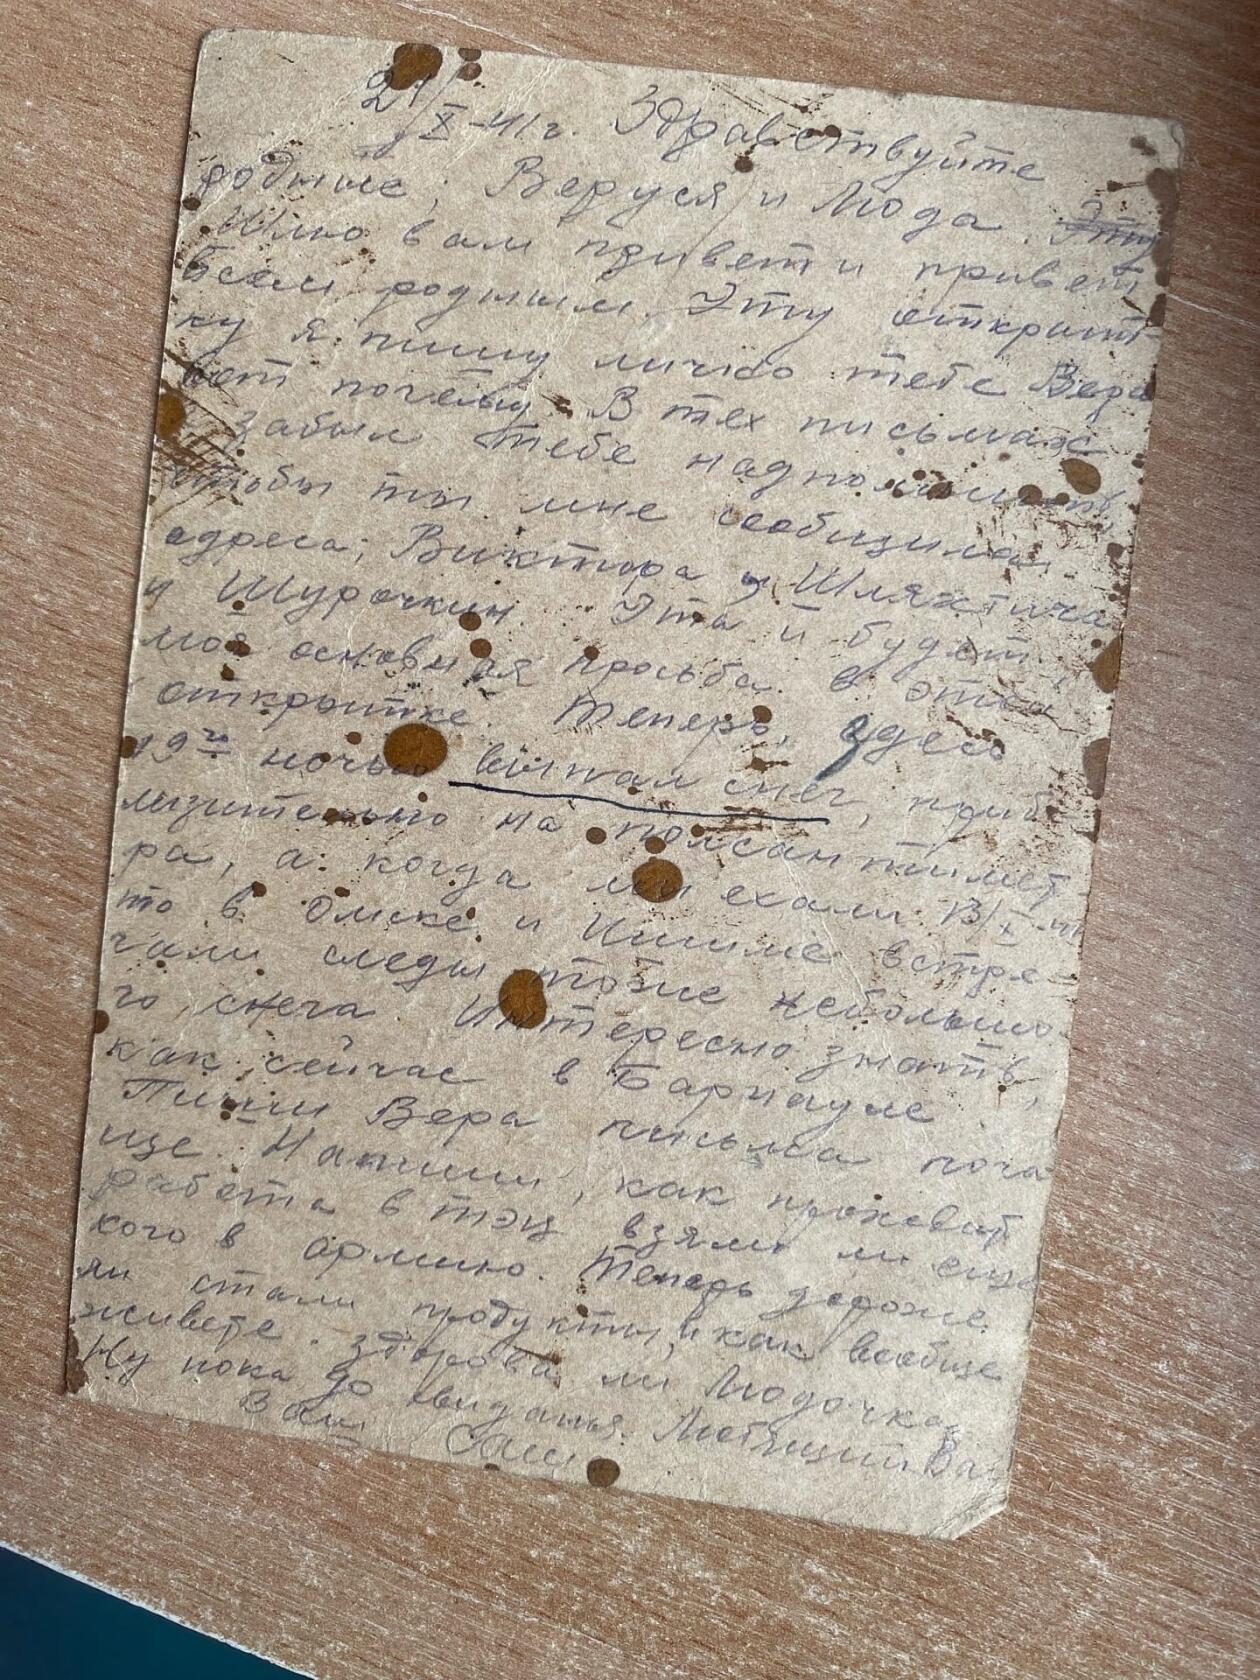 21/X-41 г. Здравствуйте
родные, Веруся и Люда. Эту
Шлю вам привет и привет
всем родным. Эту открыт-
ку я пишу лично тебе Вера
вот почему. В тех письмах
забыл тебе надпомнить,
чтобы ты мне сообщила
адреса; Виктора и Шляхтича
и Шурочкин. Эта и будет
моя основная просьба в этой
открытке. Теперь, здесь
19го ночью выпал снег, приб-
лизительно на полсантимет
ра, а когда мы ехали 13/X-41
то в Омске и Ишиме встре-
чали следы тоже небольшо
го снега. Интересно знать,
как сейчас в Барнауле.
Пиши Вера письма поча
ще. Напиши, как
работа в ТЭЦ взяли ли еще
кого в армию. Теперь дороже
ли стали продукты, и как вообще
живете. Здорова ли Людочка.
Ну пока до свиданья. Любящий Ва
Ваш Саша